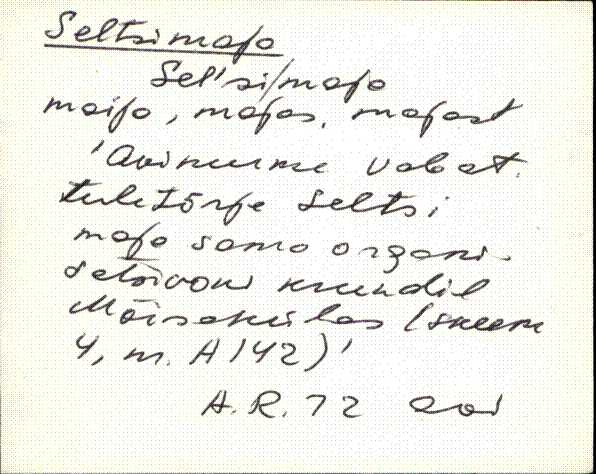 Seltsimaja
Sel'si/maja
maija, majas, majast
'Avinurme Vabat.
tuletõrje seltsi
maja sama organi-
satsiooni krundil
Mõisakülas (skeem
4, m. A 142)'
A.R. 72 Avi